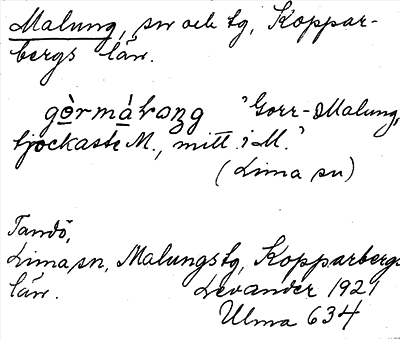 Malung, sn och tg, Koppar-
bergs län.
gòrmáƚoŋg "Gorr-Malung,
tjockaste M., mitt i M."
(Lima sn)
Tandö,
Lima sn, Malungs tg, Kopparbergs
län. Levander 1921
Ulma 634